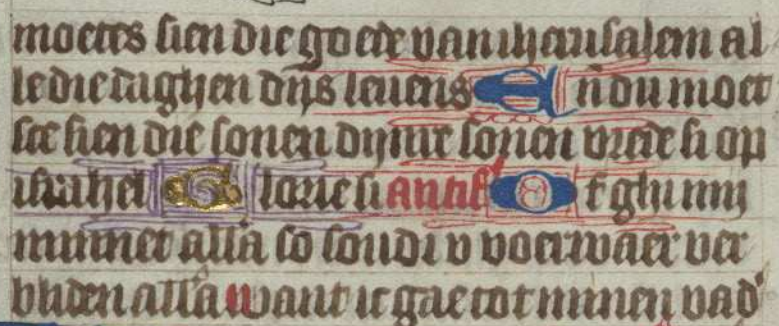 moetes sien die goede van iherusalem al
le die daghen dijns leuens En du moet
ste sien die sonen dijnre sonen vrede si op
israhel Glorie si antif Of ghi mij
minnet alla so soudi v voerwaer ver
bliden alla want ic gae tot minen vad'